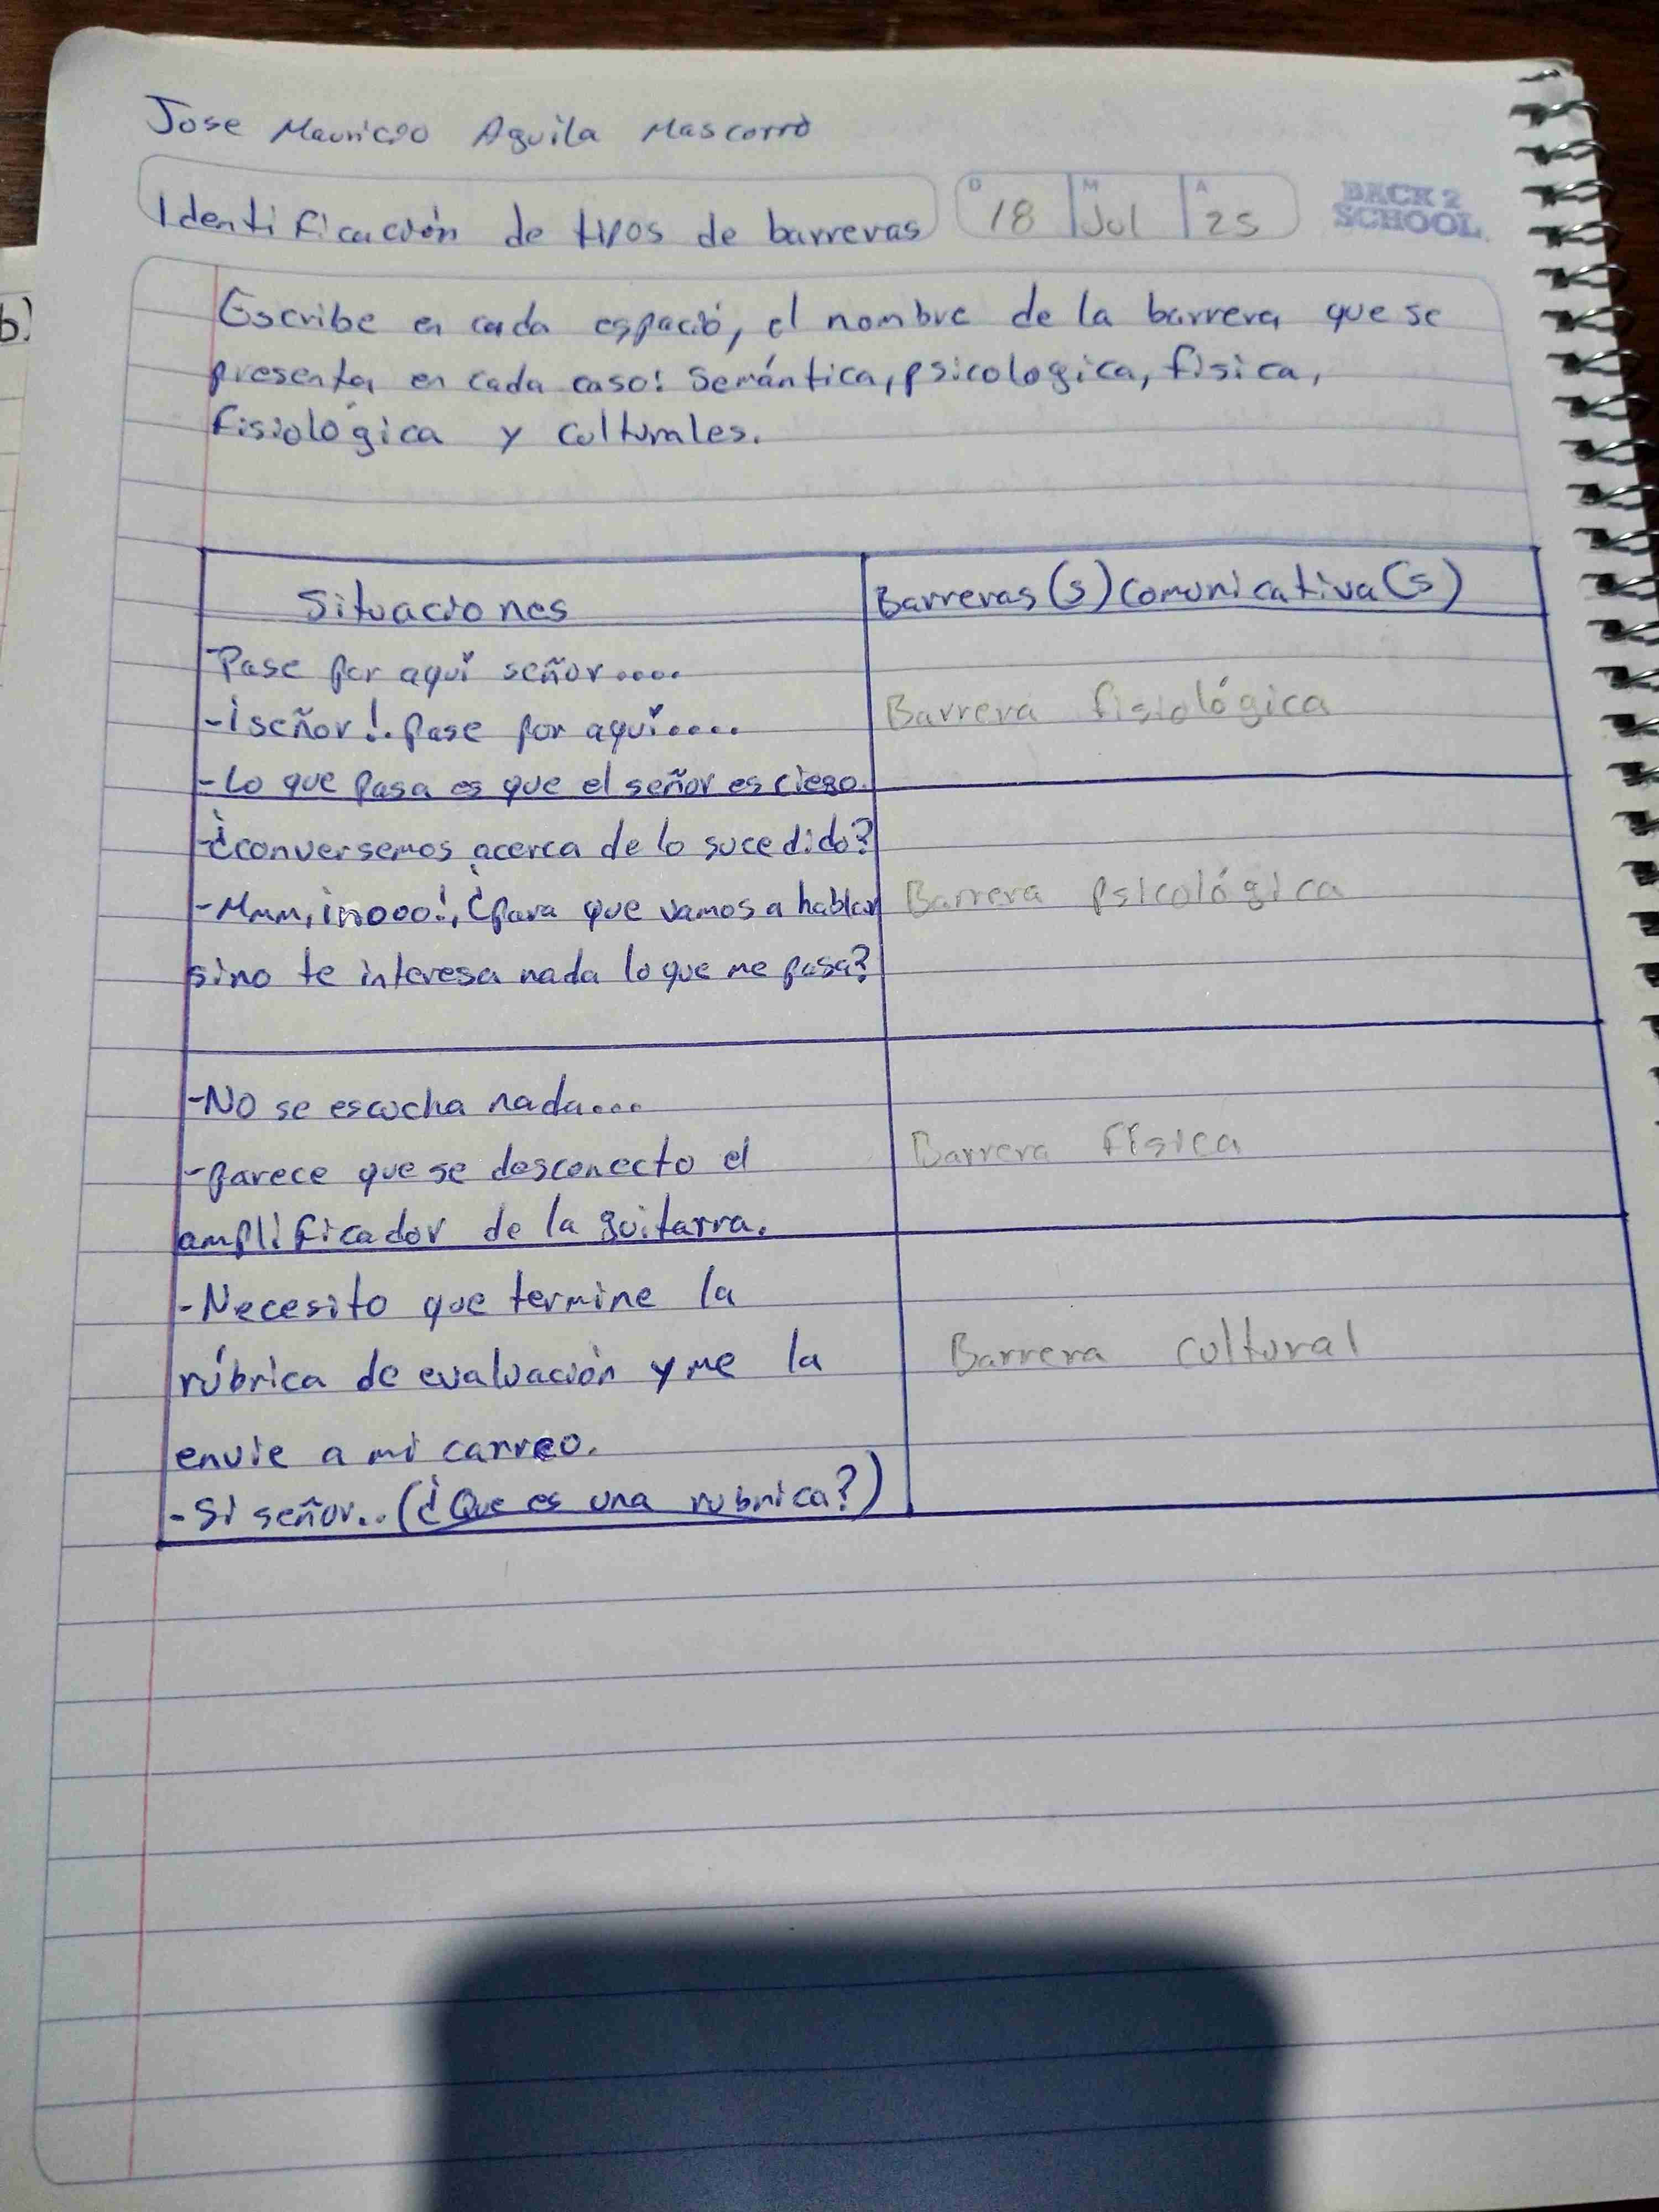 Jose Mauricio Aguila Mascorro
Identificación de tipos de barreras
D 18 M Jul A 25
BACK 2
SCHOOL
b)
Escribe en cada espació, el nombre de la barrera que se
presenta en cada caso: Semántica, psicologica, física,
fisiológica y culturales.
Situaciones
Barreras(s) comunicativa(s)
-Pase por aquí señor....
-¡señor!. Pase por aquí....
-Lo que pasa es que el señor es ciego.
Barrera fisiológica
-¿conversemos acerca de lo sucedido?
-Mmm, ¡nooo!, ¿para que vamos a hablar
sino te interesa nada lo que me pasa?
Barrera psicológica
-No se escucha nada...
-parece que se desconecto el
amplificador de la guitarra.
Barrera física
-Necesito que termine la
rúbrica de evaluación y me la
envie a mi correo.
-Si señor.. (¿Que es una rubrica?)
Barrera cultural